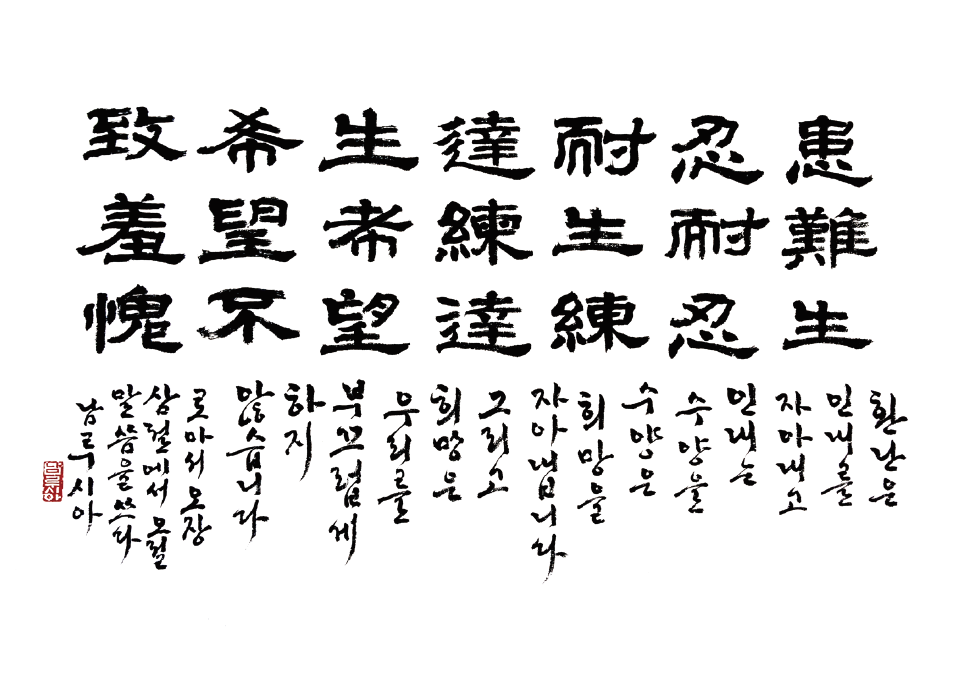 患難生
忍耐忍
耐生練
達練達
生希望
希望不
致羞愧
환난은
인내를
자아내고
인내는
수양을
수양은
희망을
자아내님니다
그리고
희망은
우리를
부끄럽게
하지
않습니다
로마서 오장
삼절에서 오절
말씀을 쓰다
남루시아